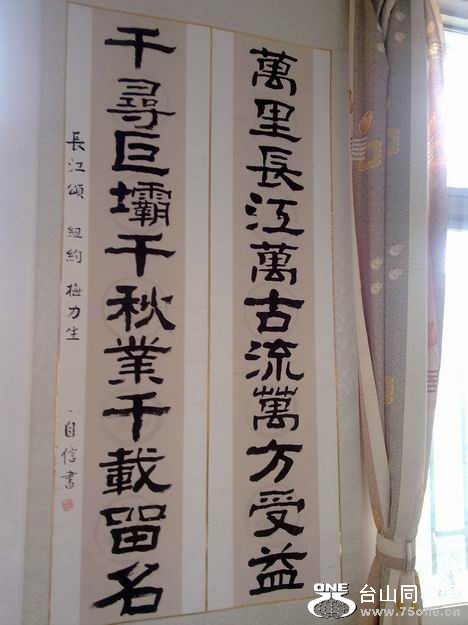 萬里長江萬古流萬方受益
千尋巨壩千秋業千載留名
長江頌 紐約 梅力生
自信書
ONE 台山同
www.75one.cn